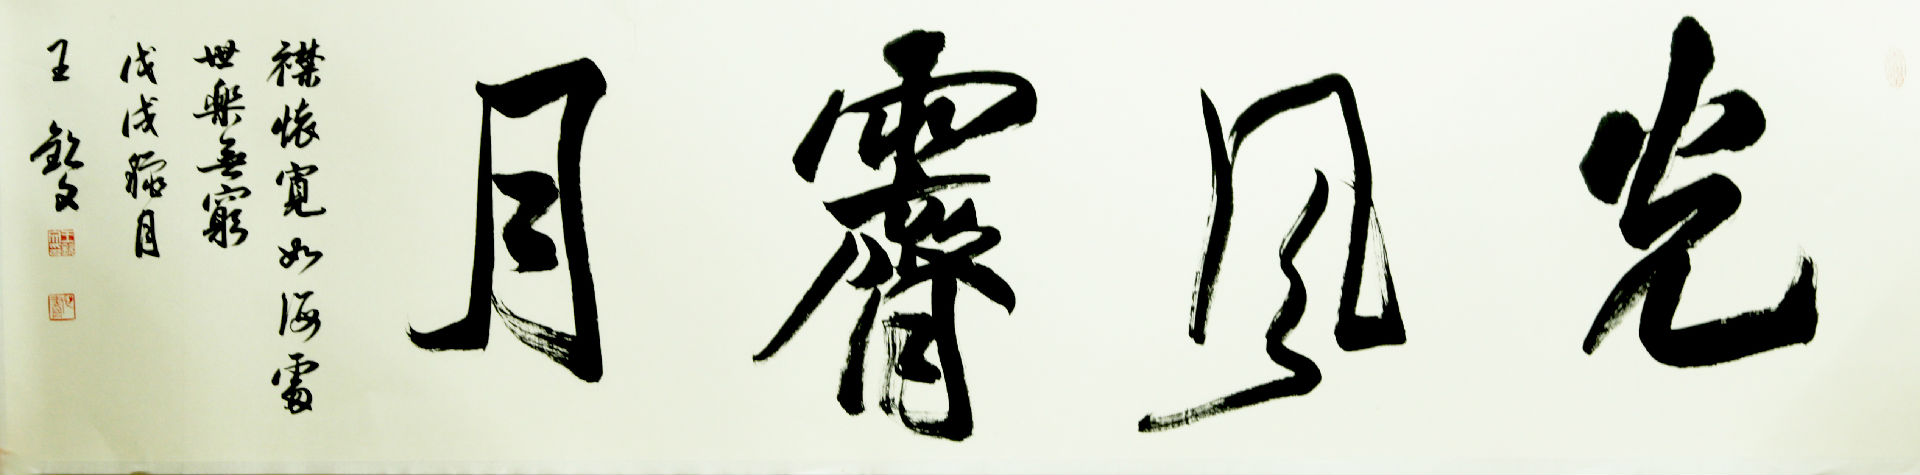 光風霽月
襟懷寬如海處
世樂無窮
戊戌臘月
王敏文